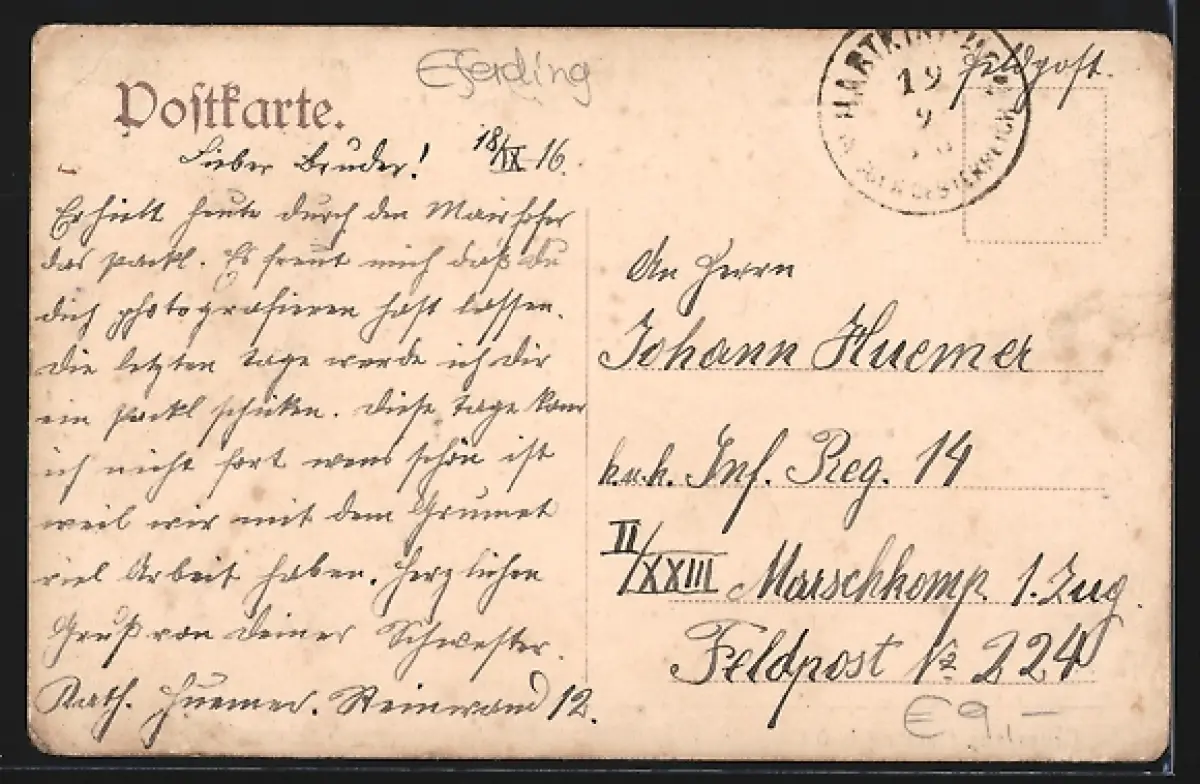 Eferding
Postkarte.
Lieber Bruder! 18/IX 16.
Erhielt heute durch den Mairhofer
das packl. Es freut mich daß du
dich photografieren hast lassen.
Die letzten tage werde ich dir
ein packl schicken. Diese tage kann
ich nicht fort wens schön ist
weil wir mit dem Grumet
viel Arbeit haben. Herzlichen
Gruß von deiner Schwester.
Kath. Huemer. Steinwand 12.
19
9
Feldpost.
An Herrn
Johann Huemer
k.u.k. Inf. Reg. 14
II/XXIII Marschkomp 1. Zug.
Feldpost № 224
E 9,–